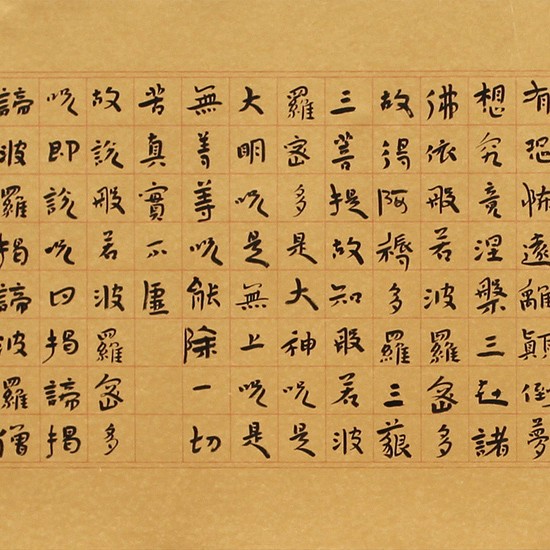 有恐怖遠離顛倒夢
想究竟涅槃三世諸
佛依般若波羅蜜多
故得阿耨多羅三藐
三菩提故知般若波
羅蜜多是大神咒是
大明咒是無上咒是
無等等咒能除一切
苦真實不虛
故說般若波羅蜜多
咒即說咒曰揭諦揭
諦波羅揭諦波羅僧